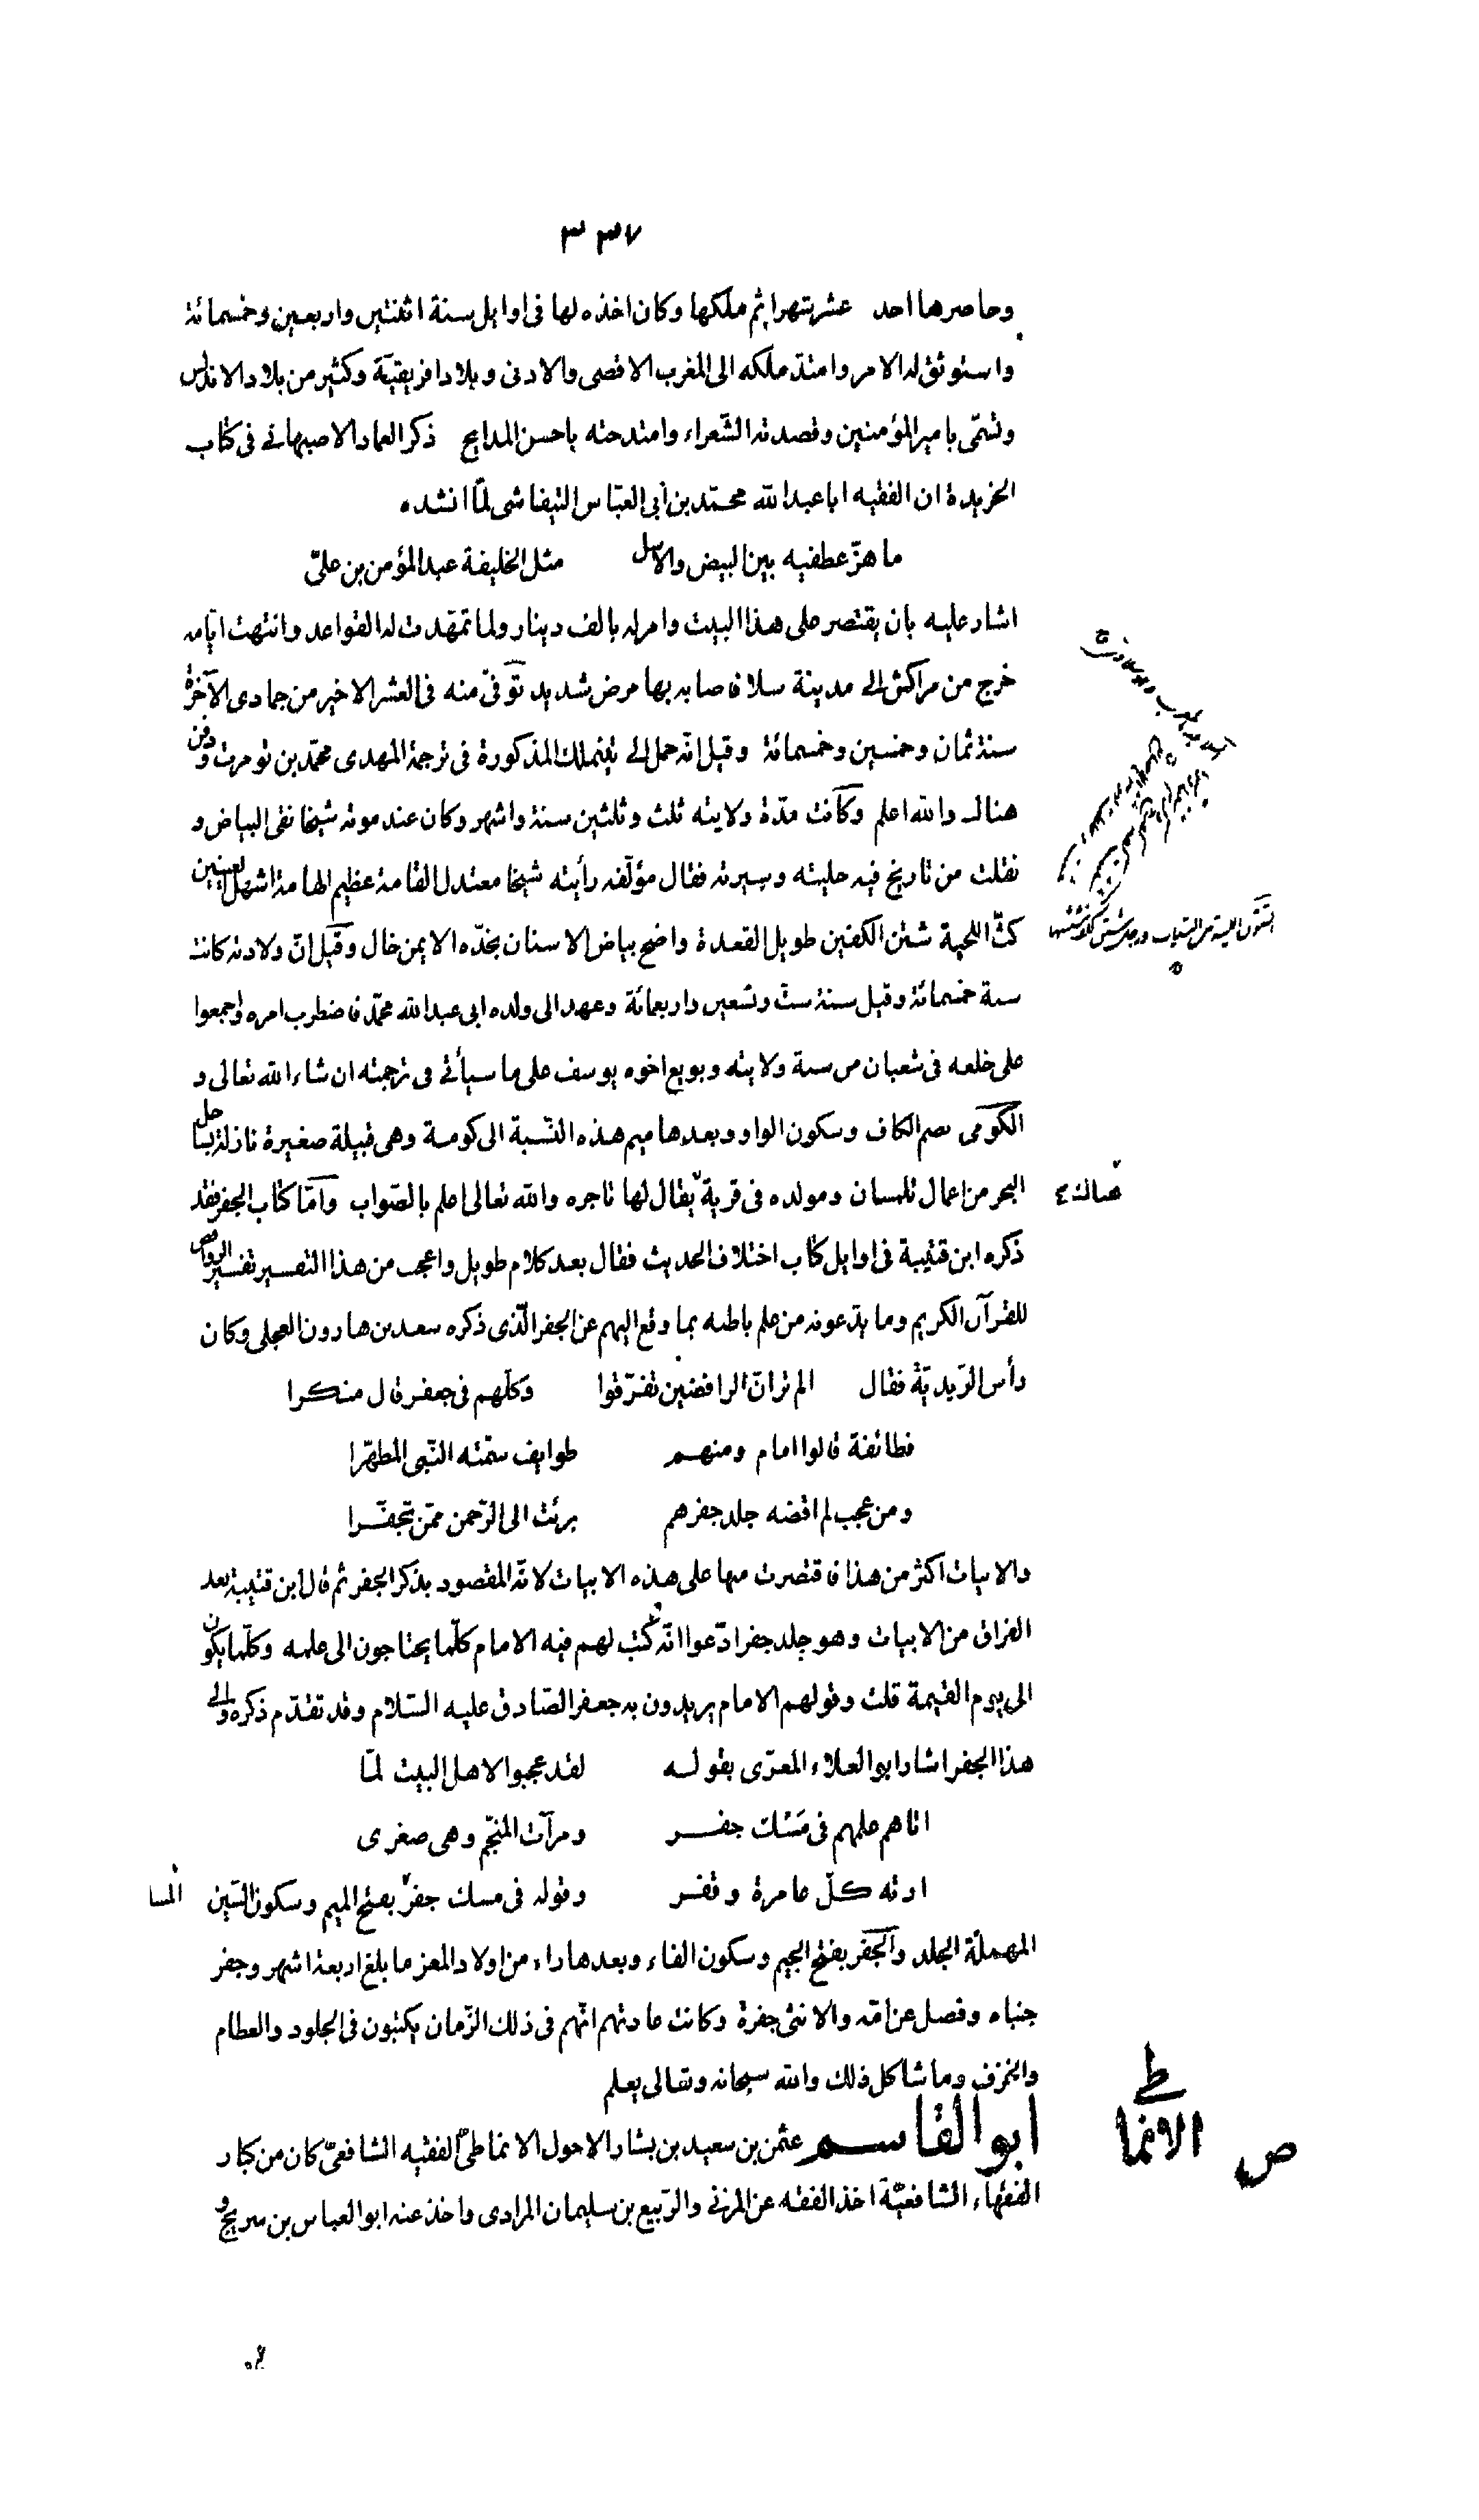 ٣٣٧
وحاصرها احد عشر شهرا ثم ملكها وكان اخذه لها فى اوايل سنة اثنتين واربعين وخمسمائة
واستوثق له الامر وامتدّ ملكه الى المغرب الاقصى والادنى وبلاد افريقيّة وكثير من بلاد الاندلس
وتسمّى بامير المؤمنين وقصدته الشّعراء وامتدحته باحسن المدايح ذكر العماد الاصبهانى فى كتاب
الخريدة ان الفقيه اباعبدالله محمّد بن أبى العبّاس التيفاشى لمّا انشده
ما هزّ عطفيه بين البيض والاسل مثل الخليفة عبد المؤمن بن علىّ
اشار عليه بان يقتصر على هذا البيت وامر له بالف دينار ولما تمهّدت له القواعد وانتهت ايّامه
خرج من مراكش الى مدينة سلا فاصابه بها مرض شديد توفىّ منه فى العشر الاخير من جمادى الآخرة
سنة ثمان وخمسين وخمسمائة وقيل انّه حمل الى تينملل المذكورة فى ترجمة المهدى محمّد بن تومرت ودفن
هناك والله اعلم وكانت مدّة ولايته ثلث وثلثين سنة واشهر وكان عند موته شيخا نقى البياض و
نقلت من تاريخ فيه حليته وسيرته فقال مؤلّفه رأيته شيخا معتدل القامة عظيم الهامة اشهل العينين
كثّ اللحية شثن الكفين طويل القعدة واضح بياض الاسنان بخدّه الايمن خال وقيل انّ ولادته كانت
سنة خمسمائة وقيل سنة ستّ وتسعين واربعمائة وعهد الى ولده ابى عبدالله محمّد فاضطرب امره واجمعوا
على خلعه فى شعبان من سنة ولايته وبويع اخوه يوسف على ما سيأتى فى ترجمته ان شاء الله تعالى و
الكومى بضم الكاف وسكون الواو وبعدها ميم هذه النّسبة الى كومية وهى قبيلة صغيرة نازلة بساحل
البحر من اعمال تلمسان ومولده فى قرية يقال لها تاجره والله تعالى اعلم بالصّواب وامّا كتاب الجفر فقد
هنالك
ذكره ابن قتيبة فى اوايل كتاب اختلاف الحديث فقال بعد كلام طويل واعجب من هذا التفسير تفسير الروافض
للقرآن الكريم وما يدّعونه من علم باطنه بما وقع اليهم عن الجفر الّذى ذكره سعد بن هارون العجلى وكان
رأس الزّيديّة فقال الم تر انّ الرافضين تفرّقوا وكلّهم فى جعفر قال منكرا
فطائفة قالوا امام ومنهم طوايف سمّته النّبى المطهّرا
ومن عجب لم اقضه جلد جفرهم برئت الى الرّحمن ممّن تجفّرا
والابيات اكثر من هذا فاقتصرت منها على هذه الابيات لانّه المقصود بذكر الجفر ثم قال ابن قتيبة بعد
الفراق من الابيات وهو جلد جفر ادّعوا انّه كتب لهم فيه الامام كلّما يحتاجون الى علمه وكلّما يكون
الى يوم القيمة قلت وقولهم الامام يريدون به جعفر الصّادق عليه السّلام وقد تقدّم ذكره والى
هذا الجفر اشار ابو العلاء المعرّى بقوله لقد عجبوا لاهل البيت لمّا
اتاهم علمهم فى مَسْك جفر ومرآت المنجّم وهى صغرى
ارته كلّ عامرة وقفر وقوله فى مسك جفر بفتح الميم وسكون السّين
المهملة الجلد والجفر بفتح الجيم وسكون الفاء وبعدها راء من اولاد المعز ما بلغ اربعة اشهر وجفر
جنباه وفصل عن امّه والانثى جفرة وكانت عادتهم انّهم فى ذلك الزّمان يكتبون فى الجلود والعظام
والخزف وما شاكل ذلك والله سبحانه وتعالى يعلم
ابو القاسم عثمن بن سعيد بن بشار الاحول الانماطىّ الفقيه الشافعىّ كان من كبار
الانماطى
ص
الفقهاء الشافعيّة اخذ الفقه عن المزنى والرّبيع بن سليمان المرادى واخذ عنه ابو العباس بن سريج و